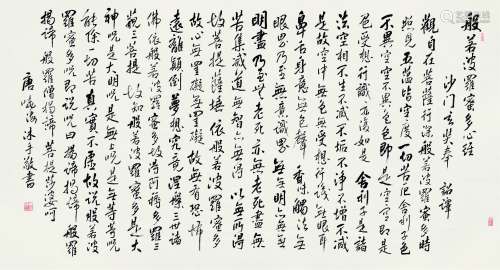 般若波羅蜜多心經
沙门玄奘奉 詔譯
觀自在菩薩行深般若波羅蜜多時
照見五蘊皆空度一切苦厄舍利子色
不異空空不異色色即是空空即是
色受想行識亦復如是舍利子是諸
法空相不生不滅不垢不淨不增不減
是故空中無色無受想行識無眼耳
鼻舌身意無色聲香味觸法無
眼界乃至無意識界無無明亦無無
明盡乃至無老死亦無老死盡無
苦集滅道無智亦無得以無所得
故菩提薩埵依般若波羅蜜多
故心無罣礙無罣礙故無有恐怖
遠離顛倒夢想究竟涅槃三世諸
佛依般若波羅蜜多故得阿耨多羅三
藐三菩提故知般若波羅蜜多是大
神咒是大明咒是無上咒是無等等咒
能除一切苦真實不虛故說般若波
羅蜜多咒即說咒曰揭諦揭諦般羅
揭諦般羅僧揭諦菩提薩婆呵
唐 海沐手敬書